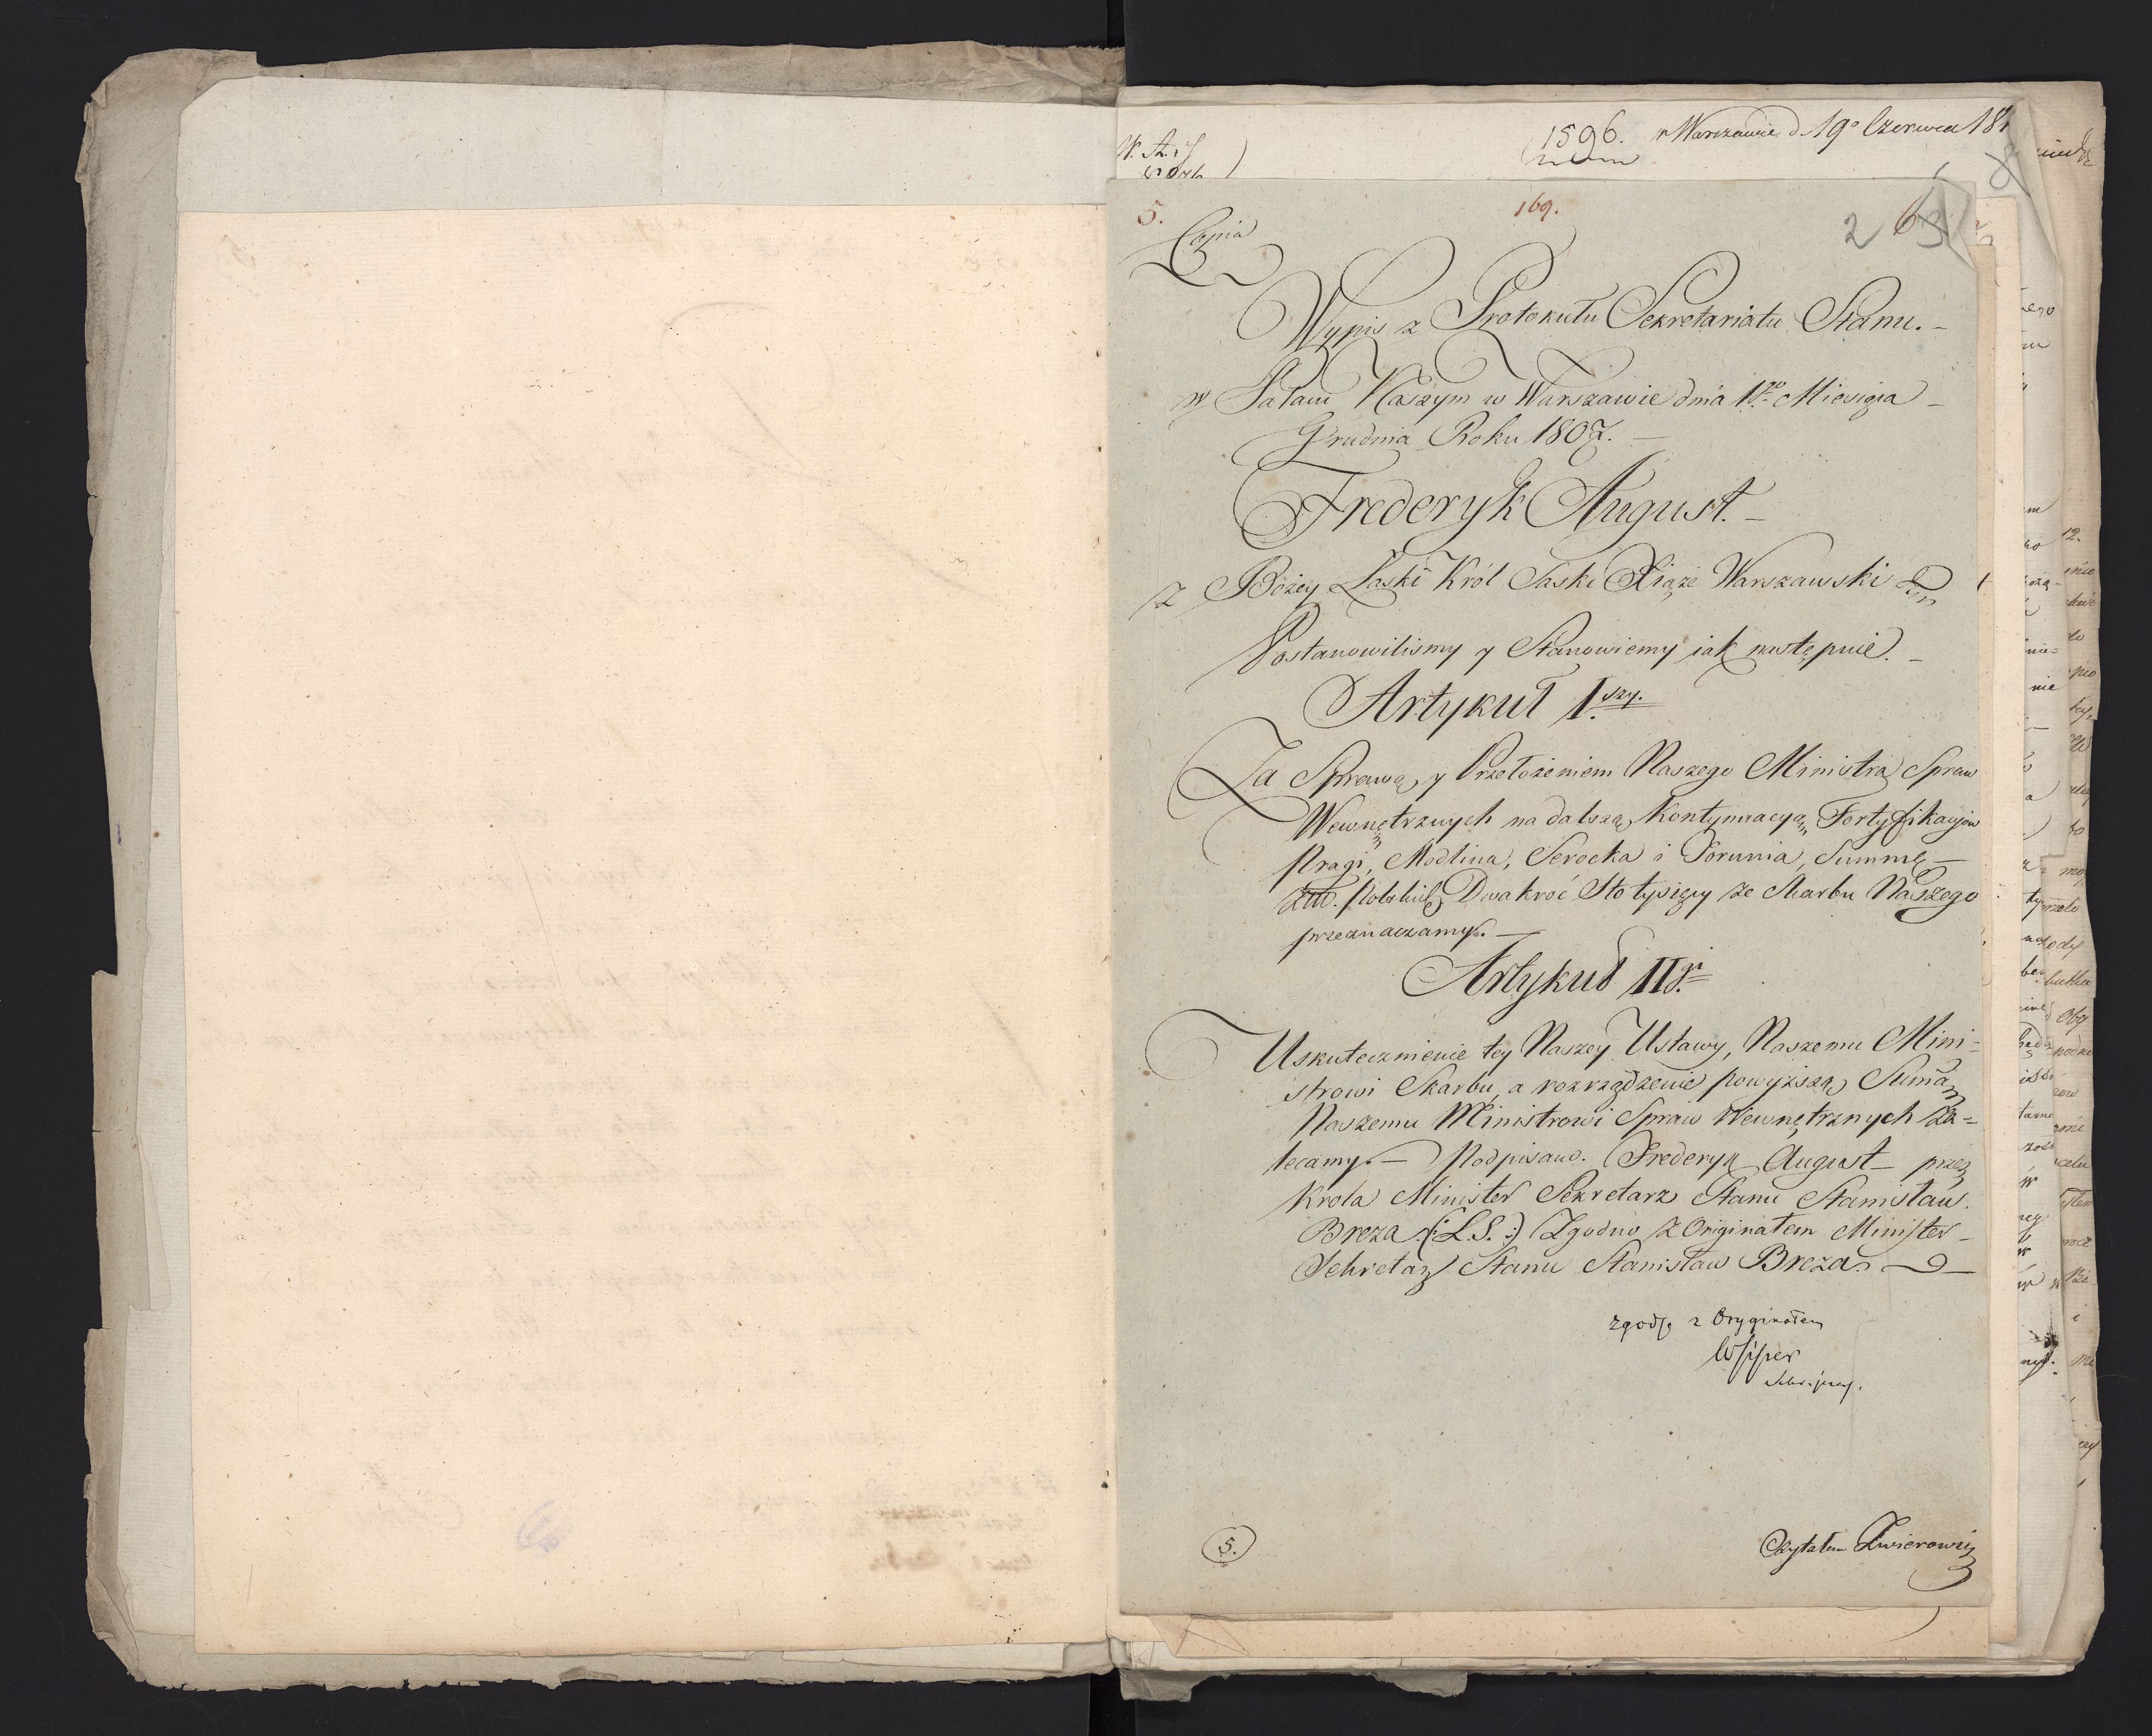 1596. w Warszawie d. 19º Czerwca 18
5.
169.
2 6 3
Copia
Wypis z Protokułu Sekretariatu Stanu. –
w Pałacu Naszym w Warszawie dnia 1go Miesiąca –
Grudnia Roku 1807. –
Frederyk August. –
z Bożey Łaski Król Saski Xiąże Warszawski
Postanowiliśmy y Stanowiemy iak następuie. –
Artykuł I.szy.
Za Sprawą y Przełożeniem Naszego Ministra Spraw
Wewnętrznych na dalszą Kontynuacyą Fortyfikacyow
Pragi, Modlina, Serocka i Torunia, Summę –
Złł. Polskich Dwakroć Sto tysięcy ze Skarbu Naszego
przeznaczamy. –
Artykuł II.gi
Uskutecznienie tey Naszey Ustawy, Naszemu Mini-
strowi Skarbu, a rozrządzenie powyższą Sumą
Naszemu Ministrowi Spraw Wewnętrznych za-
lecamy. – Podpisano. Frederyk August – przez
Krola Minister Sekretarz Stanu Stanisław.
Breza (: L.S. :) Zgodno z Originałem Minister –
Sekretarz Stanu Stanisław Breza. –
zgodno z Oryginałem
5.
Czytałem Zwierowicz